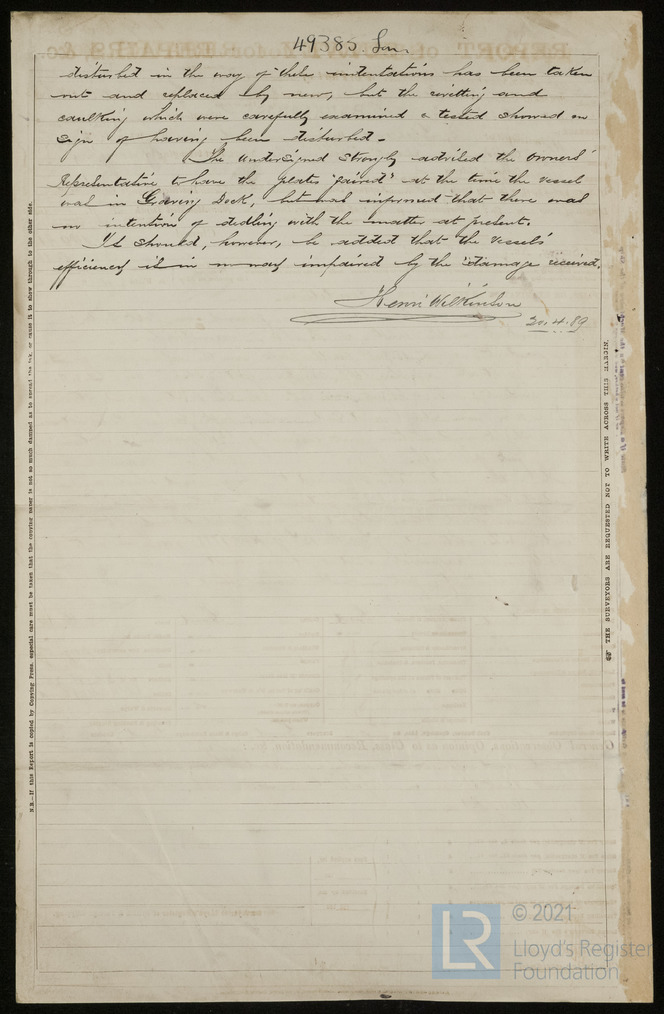 49385. Lon.
disturbed in the way of these indentations has been taken
out and replaced by new, but the rivetting and
caulking which were carefully examined & tested showed no
sign of having been disturbed.
The undersigned strongly advised the owners'
Representative to have the plates "faired" at the time the vessel
was in Graving Dock, but was informed that there was
no intention of dealing with the matter at present.
It should, however, be added that the vessel's
efficiency is in no way impaired by the damage received.
Henri Wilkinson
30.4.89
N.B.—If this Report is copied by Copying Press, especial care must be taken that the copying paper is not so much damped as to spread the ink, or cause it to show through to the other side.
THE SURVEYORS ARE REQUESTED NOT TO WRITE ACROSS THIS MARGIN.
General Observations, Opinion as to Class, Recommendation, &c.:
LR
© 2021
Lloyd's Register
Foundation